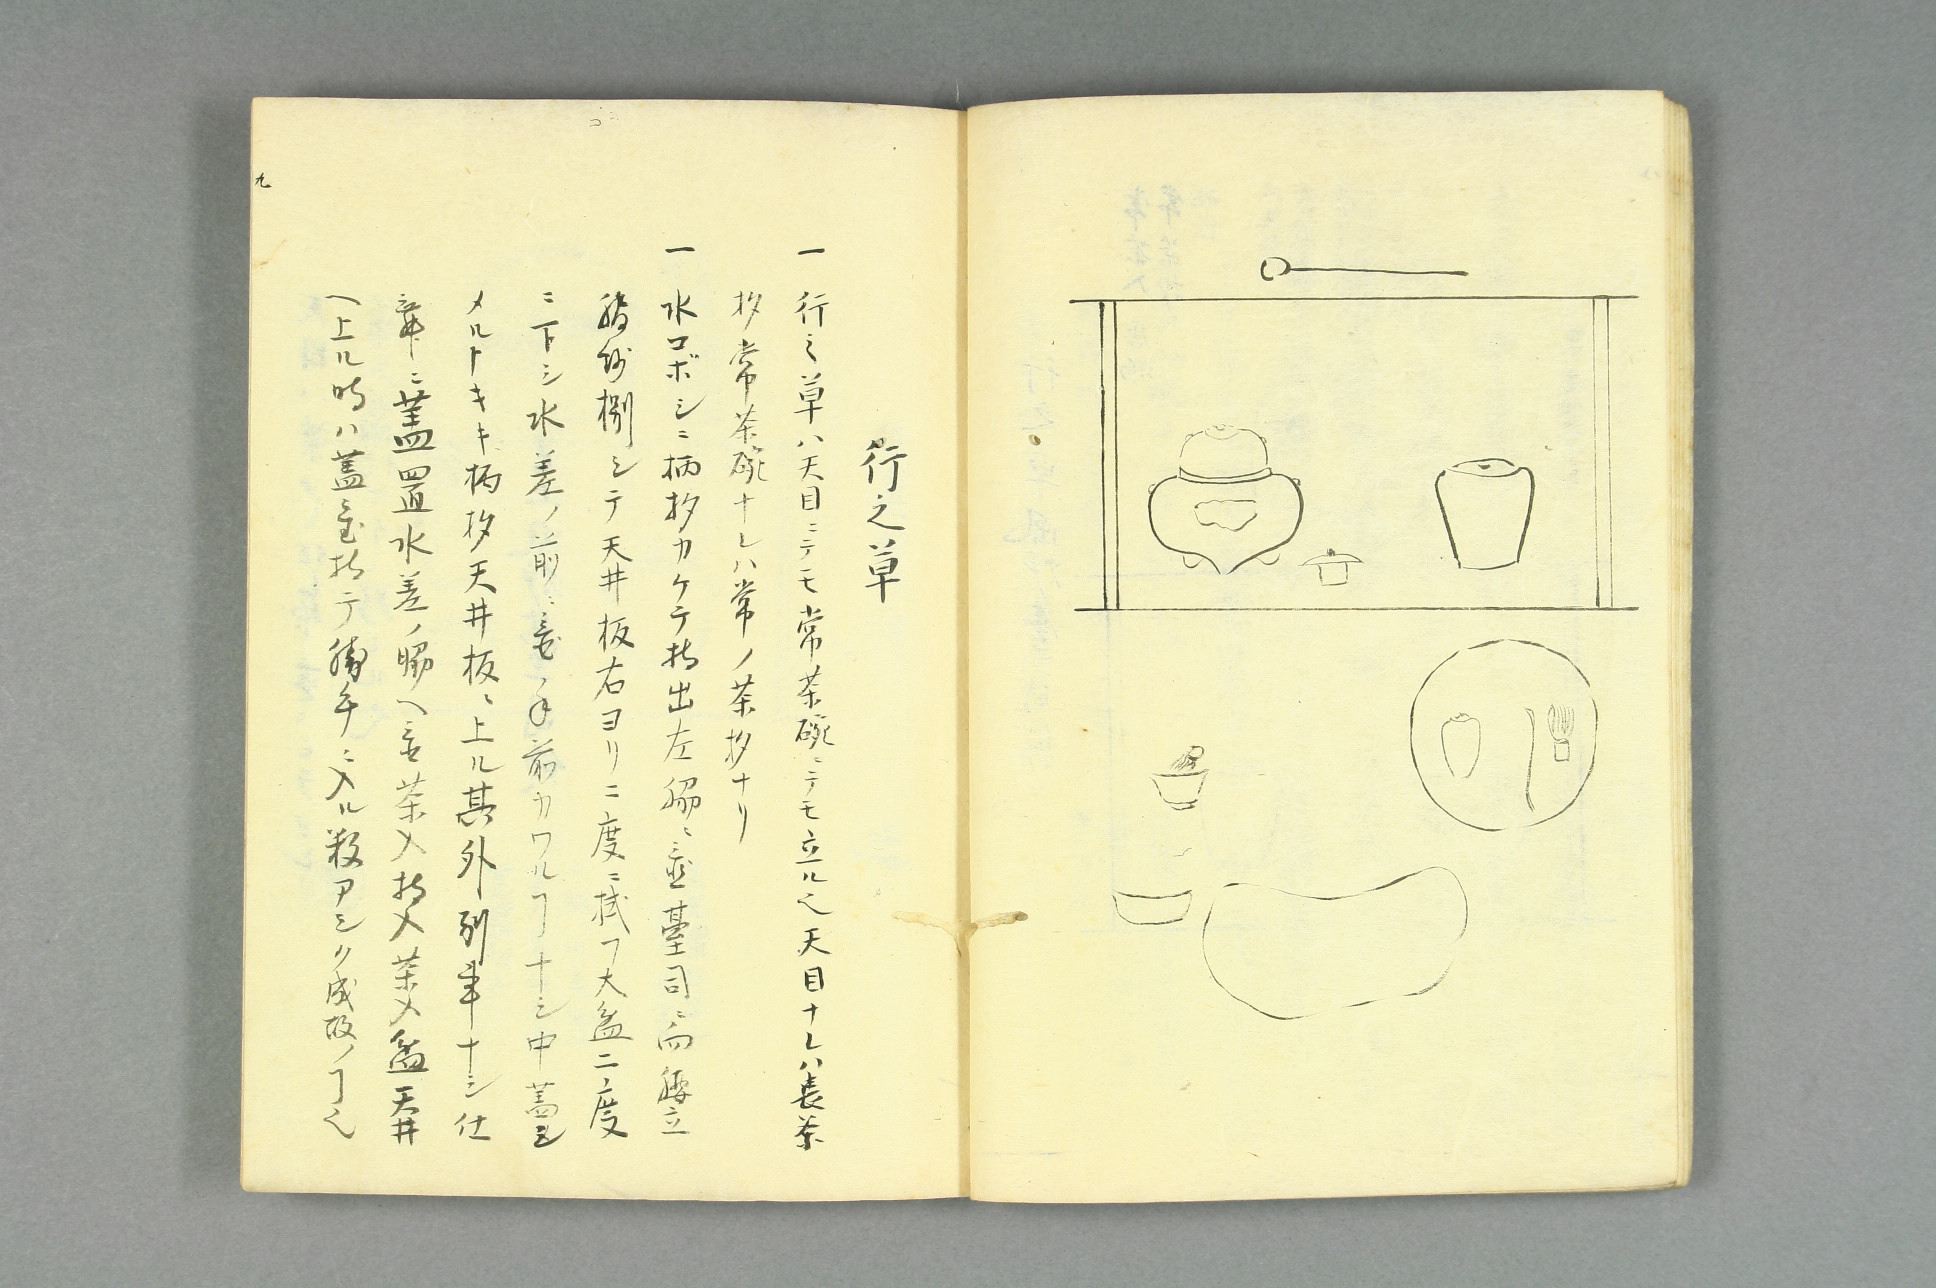 行之草
一 行之草ハ天目ニテモ常茶碗ニテモ立ル也天目ナレハ長茶
杓常茶碗ナレハ常ノ茶杓ナリ
一 水コボシニ柄杓カケテ持出左脇ニ置臺司ニ向腰立
捌シテ天井板右ヨリ二度ニ拭フ大盆二度
ニ下シ水差ノ前ニ置手前カワルヿナシ中蓋シ
メルトキキ柄杓天井板ニ上ル其外別事ナシ仕
舞ニ蓋置水差ノ脇ヘ置茶入持入茶入盆天井
ヘ上ル時ハ蓋置持テ勝手ニ入ル殺アシク成故ノヿ也
九